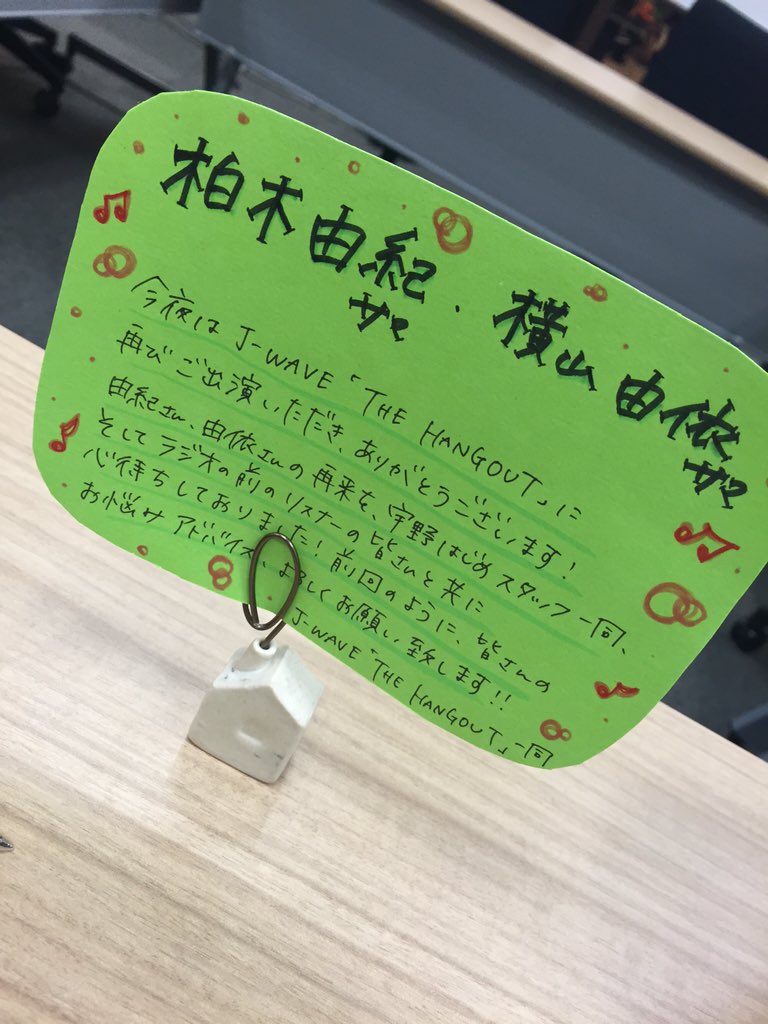 柏木由紀サマ・横山由依サマ
今夜は J-WAVE「THE HANGOUT」に
再びご出演いただき、ありがとうございます!
由紀さん、由依さんの再来を、宇野はじめスタッフ一同、
そしてラジオの前のリスナーの皆さんと共に
心待ちしておりました!前回のように、皆さんの
お悩みアドバイス、よろしくお願い致します!!
J-WAVE「THE HANGOUT」一同